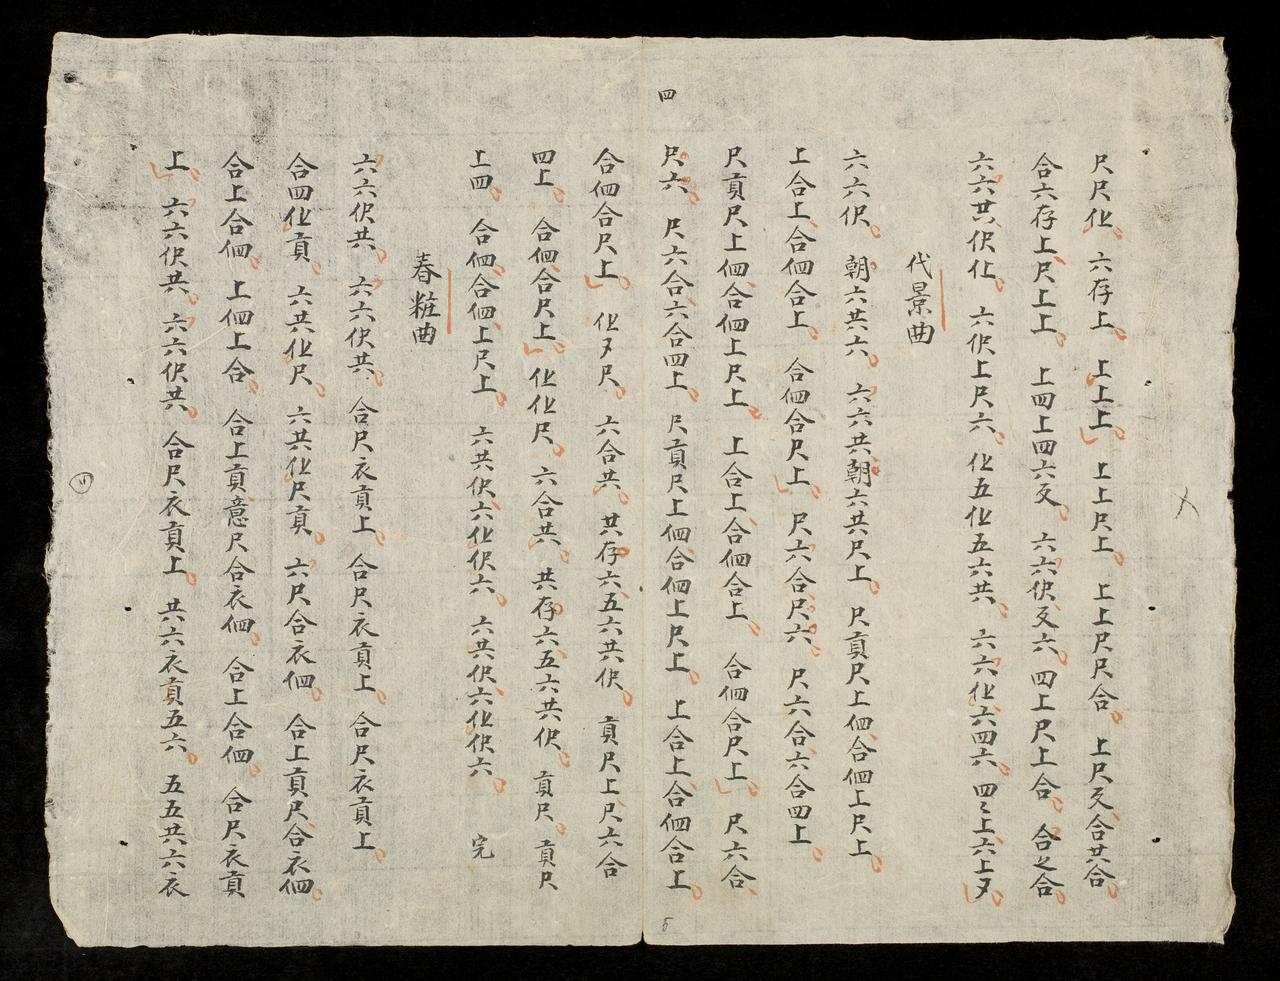 尺尺化 六存上 上上上 上上尺上 上上尺尺合 上尺𠬝合共合
合六存上尺上上 上四上四六𠬝 六六伬𠬝六 四上尺上合 合〻合
六六共伬仩 六伬上尺六 化五化五六共 六六化六四六 四〻上六上
代景曲
六六伬 朝六共六 六六共朝六共尺上 尺貢尺上佃合佃上尺上
上合上合佃合上 合佃合尺上 尺六合尺六 尺六合六合四上
尺貢尺上佃合佃上尺上 上合上合佃合上 合佃合尺上 尺六合
四
尺六 尺六合六合四上 尺貢尺上佃合佃上尺上 上合上合佃合上
合佃合尺上 化尺 六合共 共存六五六共伬 貢尺上尺六合
四上 合佃合尺上 化化尺 六合共 共存六五六共伬 貢尺 貢尺
上四 合佃合佃上尺上 六共伬六化伬六 六共伬六化伬六 完
春粧曲
六六伬共 六六伬共 合尺衣貢上 合尺衣貢上 合尺衣貢上
合四化貢 六共化尺 六共化尺貢 六尺合衣佃 合上貢尺合衣佃
合上合佃 上四上合 合上貢意尺合衣佃 合上合佃 合尺衣貢
上 六六伬共 六六伬共 合尺衣貢上 共六衣貢五六 五五共六衣